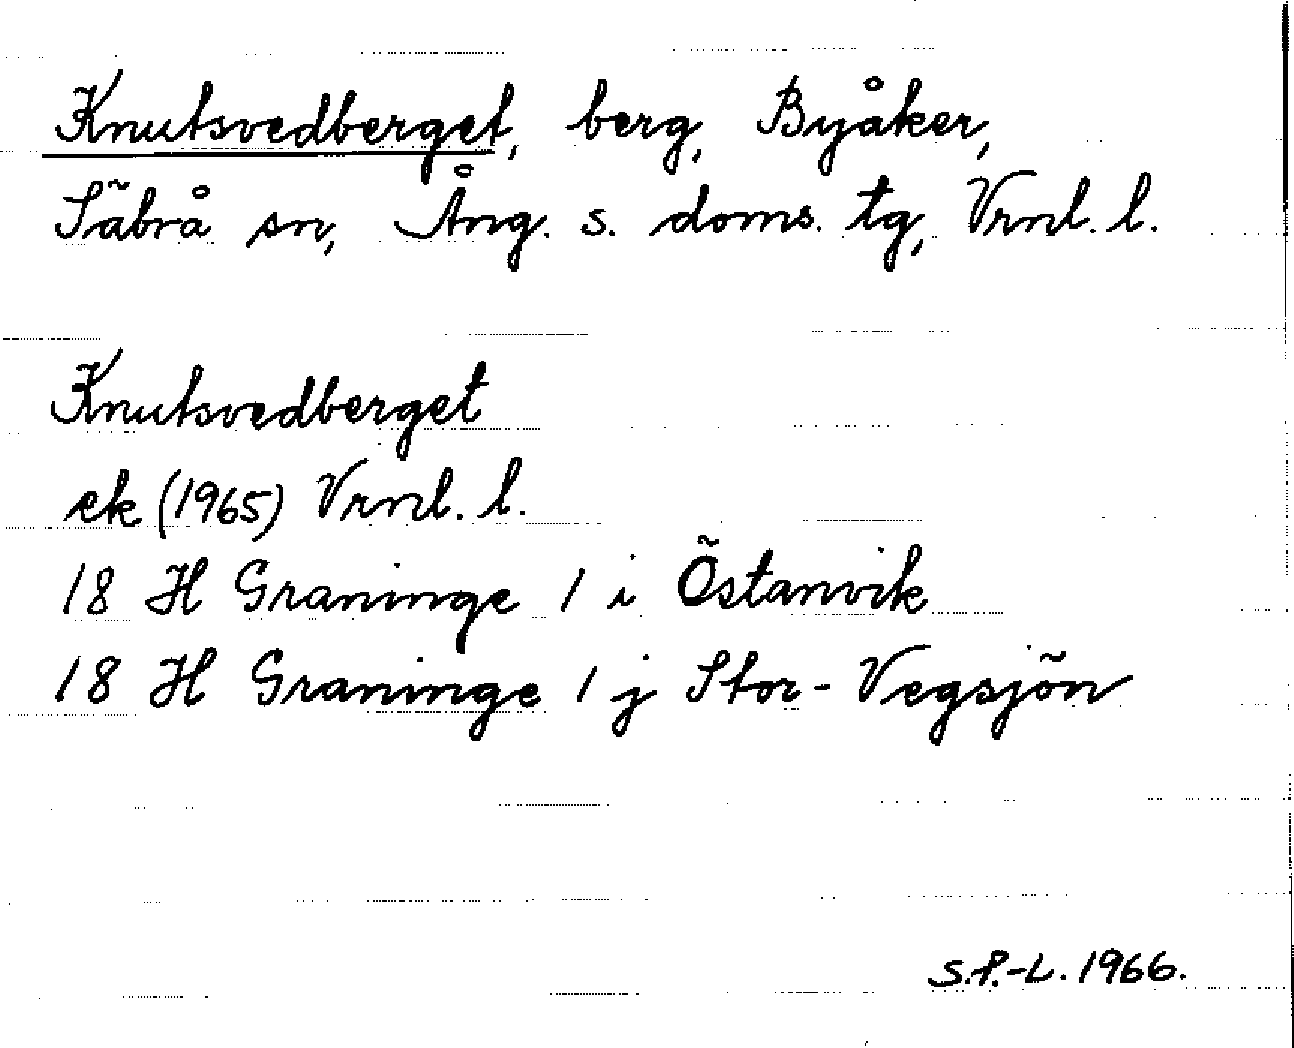 Knutsvedberget, berg, Byåker,
Säbrå sn, Ång. s. doms. tg, Vrnl. l.
Knutsvedberget
ek (1965) Vrnl. l.
18 H Graninge 1 i Östanvik
18 H Graninge 1 j Stor-Vegsjön
S.P.-L. 1966.